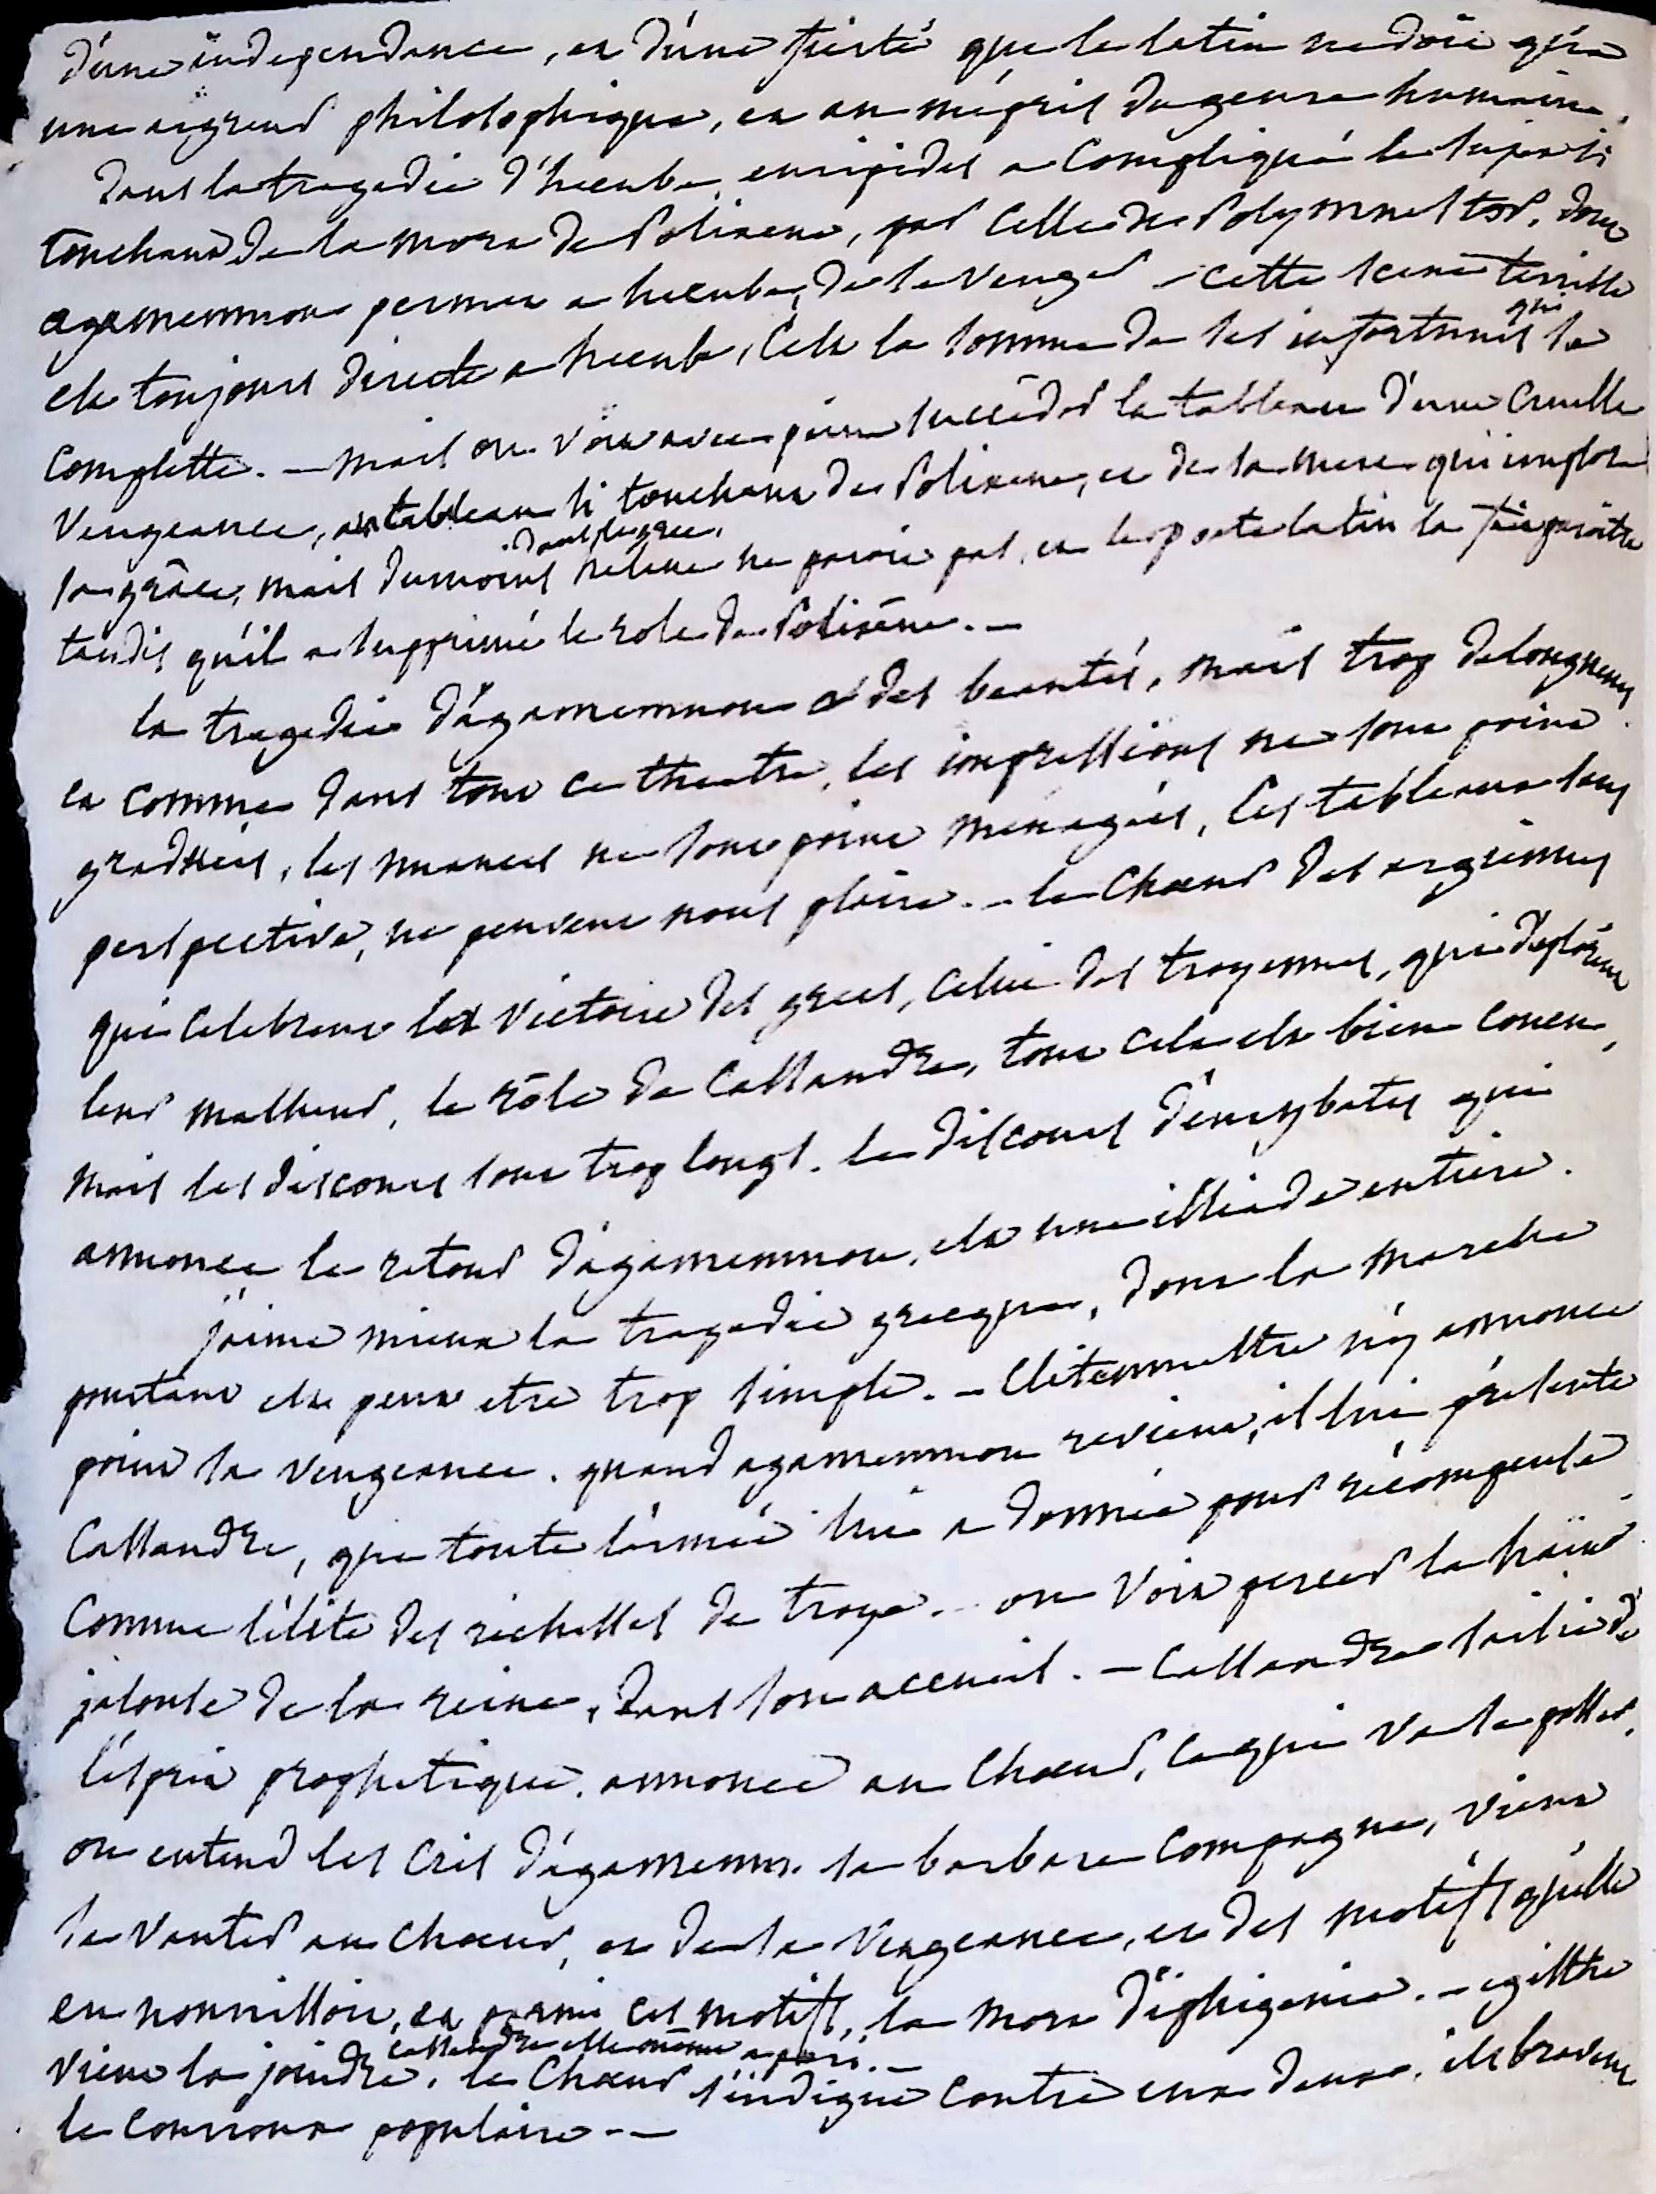 d'une independance, et d'une fierté que le latin ne doit qu'a
une aigreur philosophique, et au mépris du genre humain.
dans la tragedie d'hecube, euripides a compliqué le sujet si
touchant de la mort de Polixene, par celle de Polymnestor, dont
agamemnon permet a hecube, de se venger – cette scene terrible
est toujours directe a hecube, c'est la somme de ses infortunes qui se
complette. – mais on voit avec peine succéder le tableau d'une cruelle
vengeance, au tableau si touchant de Polixene, et de sa mere qui implore
sa grâce, mais dumoins dans le grec, helene ne paroit pas, et le poete latin la fait paroitre
tandis qu'il a supprimé le role de Polixène. –
la tragedie d'agamemnon a des beautés, mais trop de longueurs
et comme dans tout ce theatre, les impressions ne sont point
graduées, les nuances ne sont point menagées, les tableaux sans
perspective, ne peuvent nous plaire. – le chœur des argiennes
qui celebrent la victoire des grecs, celui des troyennes, qui deplorent
leur malheur, le rôle de Cassandre, tout cela est bien concu,
mais les discours sont trop longs. le discours d'eurybates qui
annonce le retour d'agamemnon, est une illiade entiere.
j'aime mieux la tragedie grecque, dont la marche
pourtant est peut etre trop simple. – Clitemnestre n'y annonce
point sa vengeance. quand agamemnon revient, il lui présente
Cassandre, que toute l'armée lui a donnée pour récompense
comme l'élite des richesses de troye. – on voit percer la haine
jalouse de la reine, dans son accueil. – Cassandre saisie de
l'esprit prophetique, annonce au chœur, ce qui va se passer,
on entend les cris d'agamemn. sa barbare compagne, vient
se vanter au chœur, et de sa vengeance, et des motifs qu'elle
en nourrissoit, et parmi ces motifs, la mort d'iphigenie. – egisthe
vient la joindre, Cassandre elle même a péri. – le chœur s'indigne contre eux deux, ils bravent
le courroux populaire. –